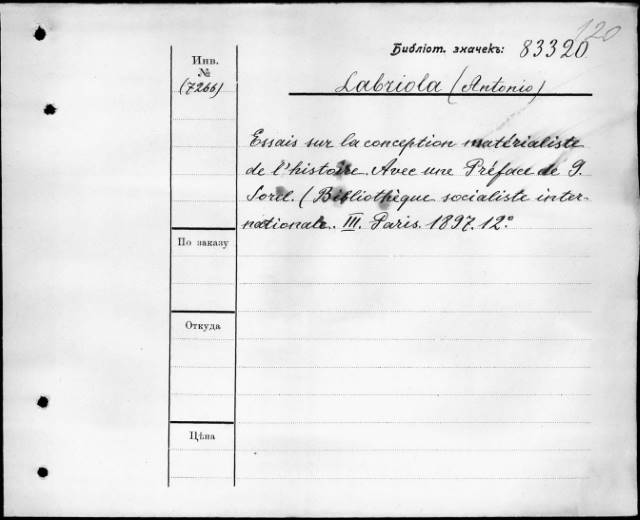 120
Библіот. значекъ: 83320
Инв.
№
(7266)
Labriola (Antonio)
Essais sur la conception matérialiste
de l'histoire. Avec une Préface de G.
Sorel. (Bibliothèque socialiste inter-
nationale. III. Paris. 1897. 12°
По заказу
Откуда
Цѣна